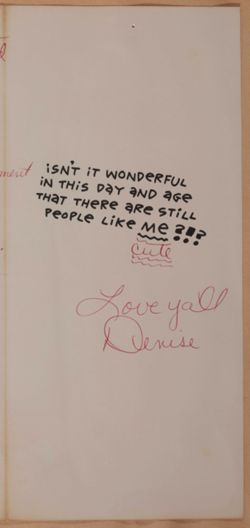 ISN'T IT WONDERFUL
IN THIS DAY AND AGE
THAT THERE ARE STILL
PEOPLE LIKE ME?!?
cute
Love ya'll
Denise